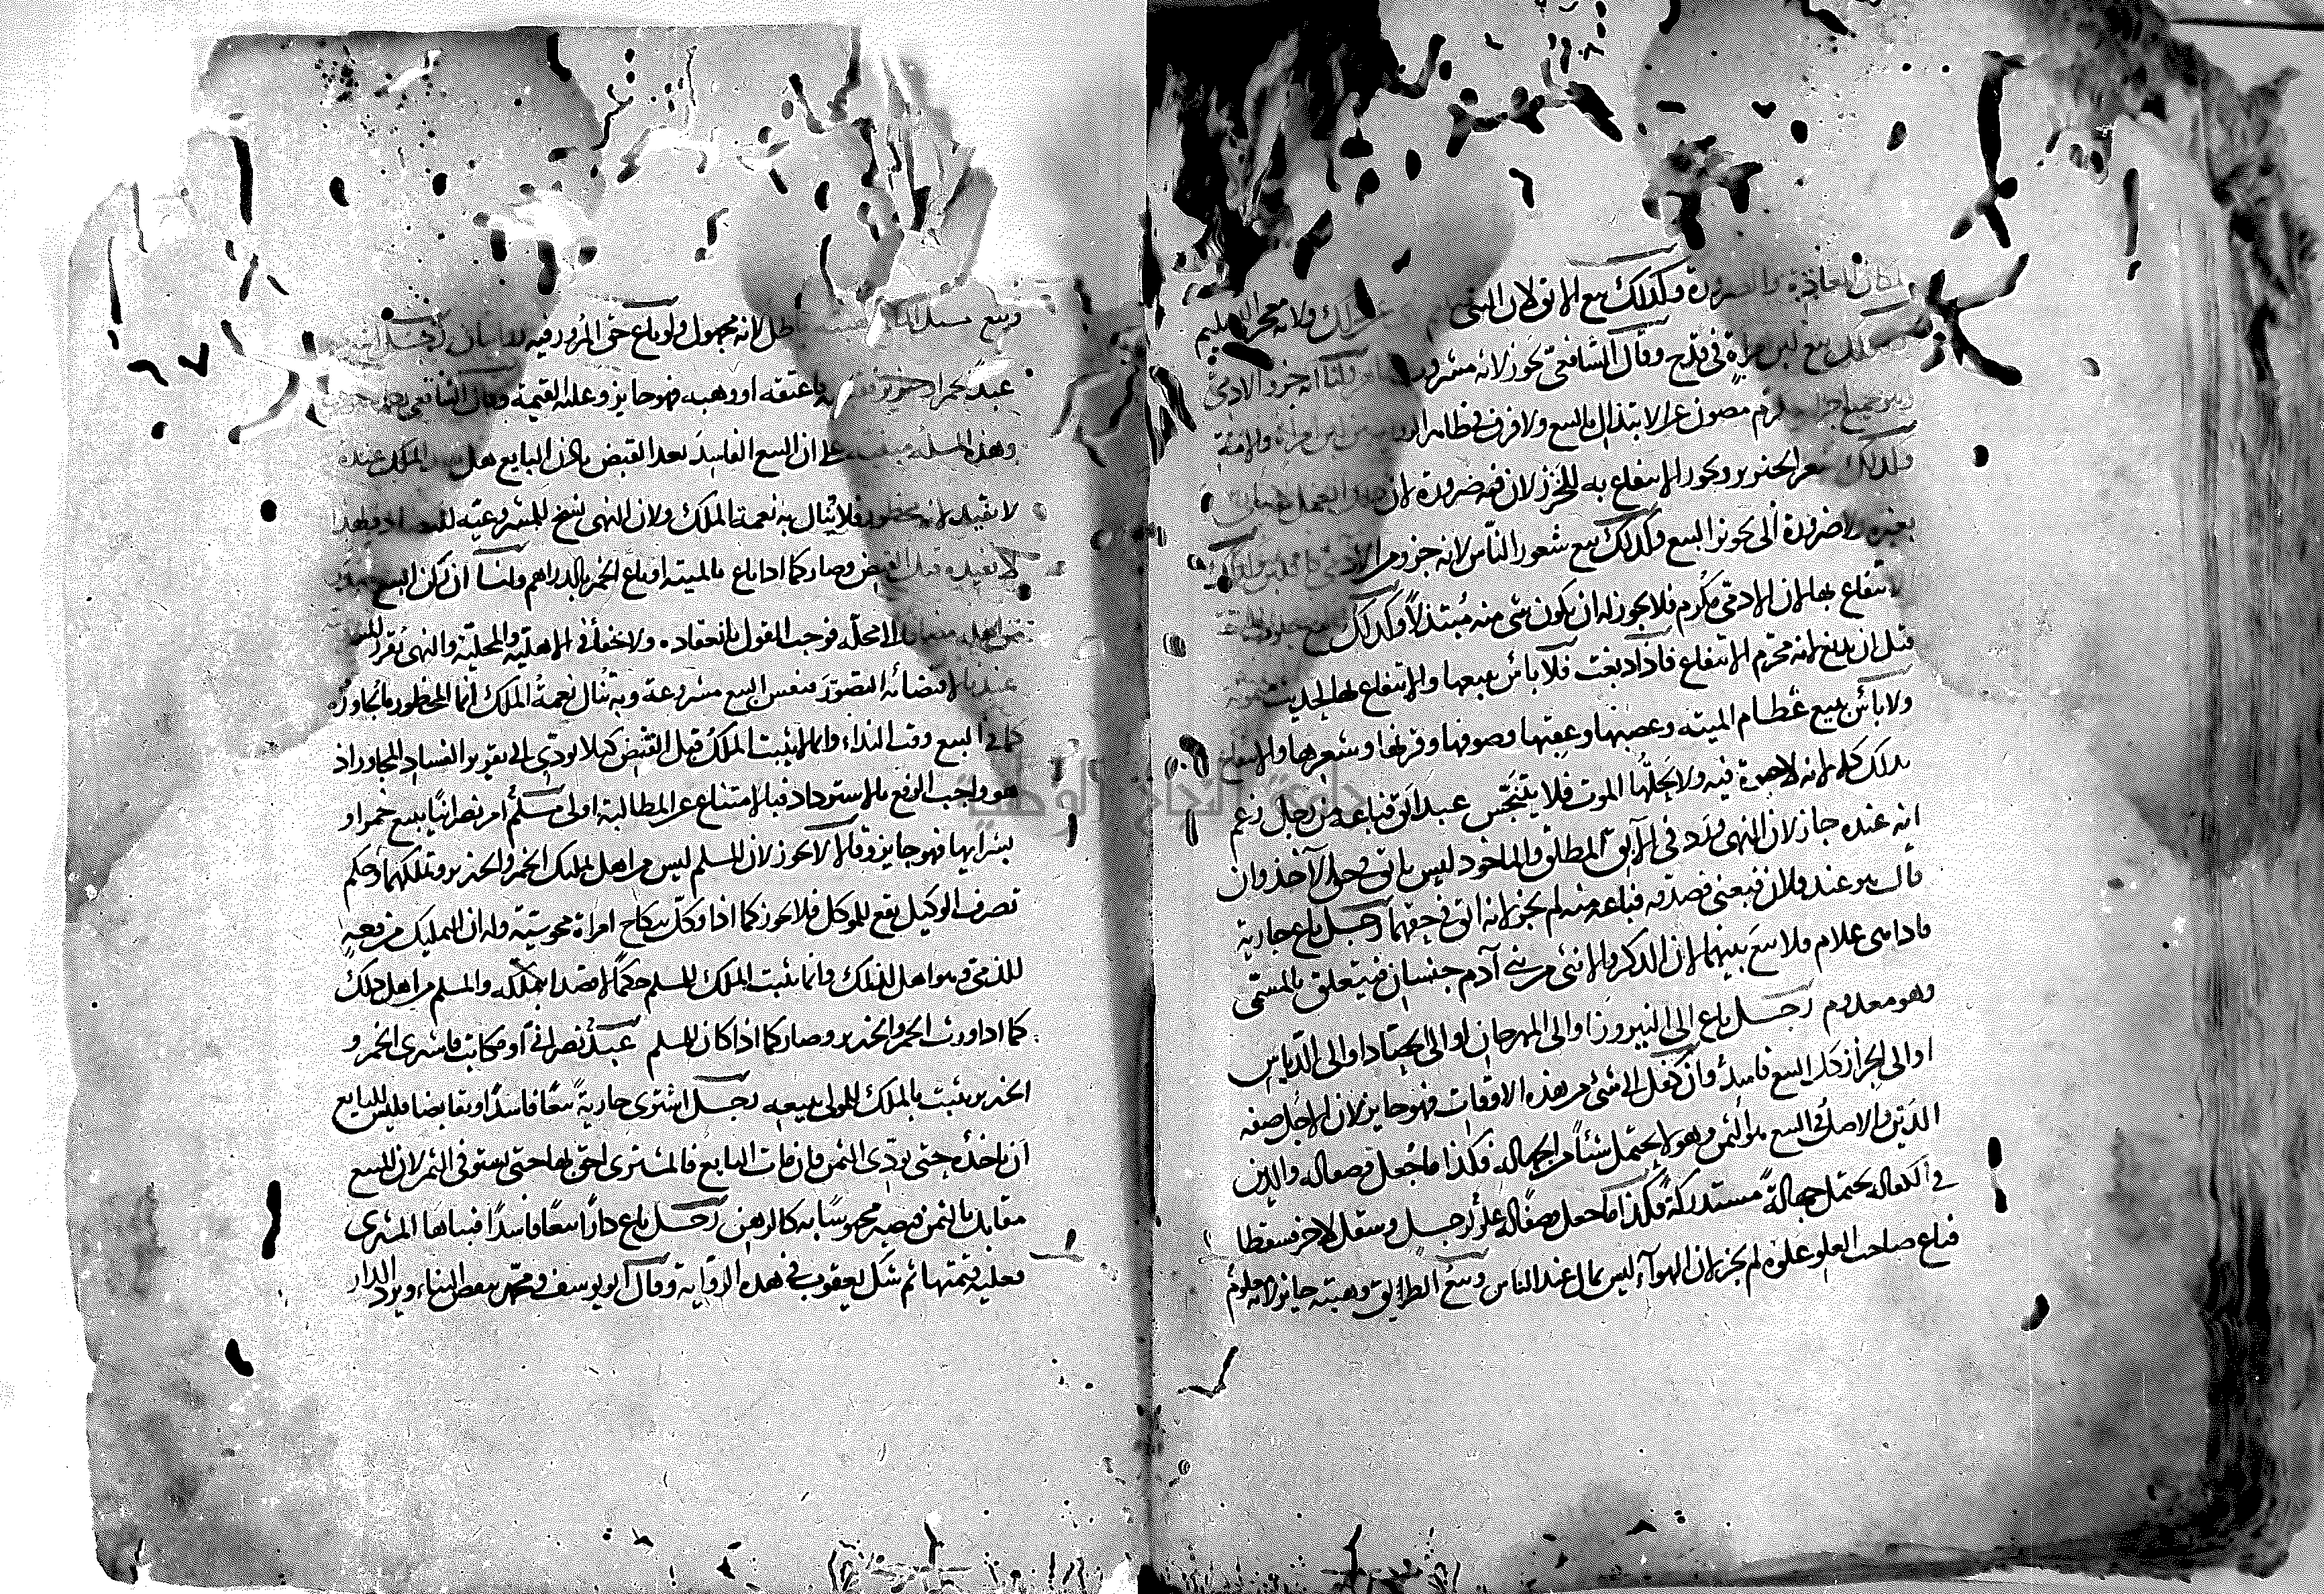 لمكان العادة والضرورة وكذلك بيع الابق لان النهى عن ذلك ولانه معجز التسليم
وكذلك بيع لبن امراة في قدح وقال الشافعي يجوز لانه مشروب ولنا انه جزو الادمى
وهو بجميع اجزائه مكرم مصون عن الابتذال بالبيع ولا فرق في ظاهر الرواية بين لبن امراة والامة
وكذلك شعر الخنزير ويجوز الانتفاع به للخرز لان فيه ضرورة لان ذلك العمل
بغيره ولا ضرورة الى تجويز البيع وكذلك بيع شعور الناس لانه جزو من الادمى
الانتفاع بها لان الادمى مكرم فلا يجوز له ان يكون شى منه مبتذلاً وكذلك بيع جلود الميتة
قبل ان يدبغ لانه محرم الانتفاع فاذا دبغت فلا باس ببيعها والانتفاع بها لحديث ميمونة
ولا باس ببيع عظام الميته وعصبها وعقبها وصوفها وقرنها وشعرها والانتفاع
بذلك كله لانه لا حيوة فيه ولا يحلها الموت فلا يتنجس عبد ابق فباعه من رجل زعم
انه عنده جاز لان النهى ورد في الآبق المطلق والماخوذ ليس بابق في حق الآخذ وان
قال هو عند فلان فبعنى فصدقه فباعه منه لم يجز لانه ابق في حقهما رجل باع جارية
فاذا هى غلام فلا بيع بينهما لان الذكر والانثى من بنى آدم جنسان فيتعلق بالمسمى
وهو معدوم رجل باع الى النيروز او الى المهرجان او الى الحصاد او الى الدياس
او الى الجزاز كل البيع فاسد وان كفل الى شئ من هذه الاوقات فهو جايز لان الاجل صفه
الدين والاصل في البيع هو الثمن وهو لا يحتمل شئاً من الجهاله فكذا ما جعل وصفا له والدين
في الكفاله يحتمل جهالة مستدركة فكذا ما جعل وصفا له علو لرجل وسفل لاخر فسقطا
فباع صاحب العلو علوه لم يجز لان الهوآء ليس بمال عند الناس وبيع الطريق وهبته جايز لانه معلوم
وبيع مسيل الماء وهبته باطل لانه مجهول ولو باع حق المرور فيه روايتان رجل اشترى
عبد بخمر او خنزير فقبضه باعتقه او وهبه فهو جايز وعليه القيمة وقال الشافعي
وهذه المسئله مبنية على ان البيع الفاسد بعد القبض باذن البايع هل يفيد الملك عنده
لا يفيد لانه محظور فلا ينال به نعمة الملك ولان النهى نسخ للمشروعيه للتضاد ولهذا
لا يفيده قبل القبض وصار كما اذا باع بالميته او باع الخمر بالدراهم ولنا ان ركن البيع صدر
من اهله مضافا الى محله فوجب القول بانعقاده ولا خفأ في الاهلية والمحلية والنهى يقرر المشروعية
عندنا لاقتضائه التصور فنفس البيع مشروعة وبه تنال نعمة الملك انما المحظور ما يجاوره
كما في البيع وقت النداء وانما لا يثبت الملك قبل القبض كيلا يودى الى تقرير الفساد المجاور اذ
هو واجب الرفع بالاسترداد فبالامتناع عن المطالبة اولى مسلم امر نصرانيا ببيع خمر او
بشرايها فهو جايز وقالا لا يجوز لان المسلم ليس من اهل تمليك الخمر والخنزير وتملكهما وحكم
تصرف الوكيل يقع للموكل فلا يجوز كما اذا وكل بنكاح امراة مجوسية وله ان التمليك مرفعه
للذمى وهو اهل لذلك وانما يثبت الملك للمسلم حكماً لا قصدا بتملكه والمسلم من اهل ذلك
كما اذا ورث الخمر والخنزير وصار كما اذا كان للمسلم عبد نصرانى او مكاتب فاشترى الخمر و
الخنزير يثبت الملك للمولى ببيعه رجل اشترى جارية بيعا فاسدا وتقابضا فليس للبايع
ان ياخذه حتى يودى الثمن فان مات البايع فالمشترى احق بها حتى يستوفى الثمن لان المبيع
مقابل بالثمن فيصير محبوسا به كالرهن رجل باع داراً بيعا فاسداً فبناها المشترى
فعليه قيمتها ثم شك يعقوب في هذه الرواية وقال ابو يوسف ومحمد ينقض البناء ويرد الدار